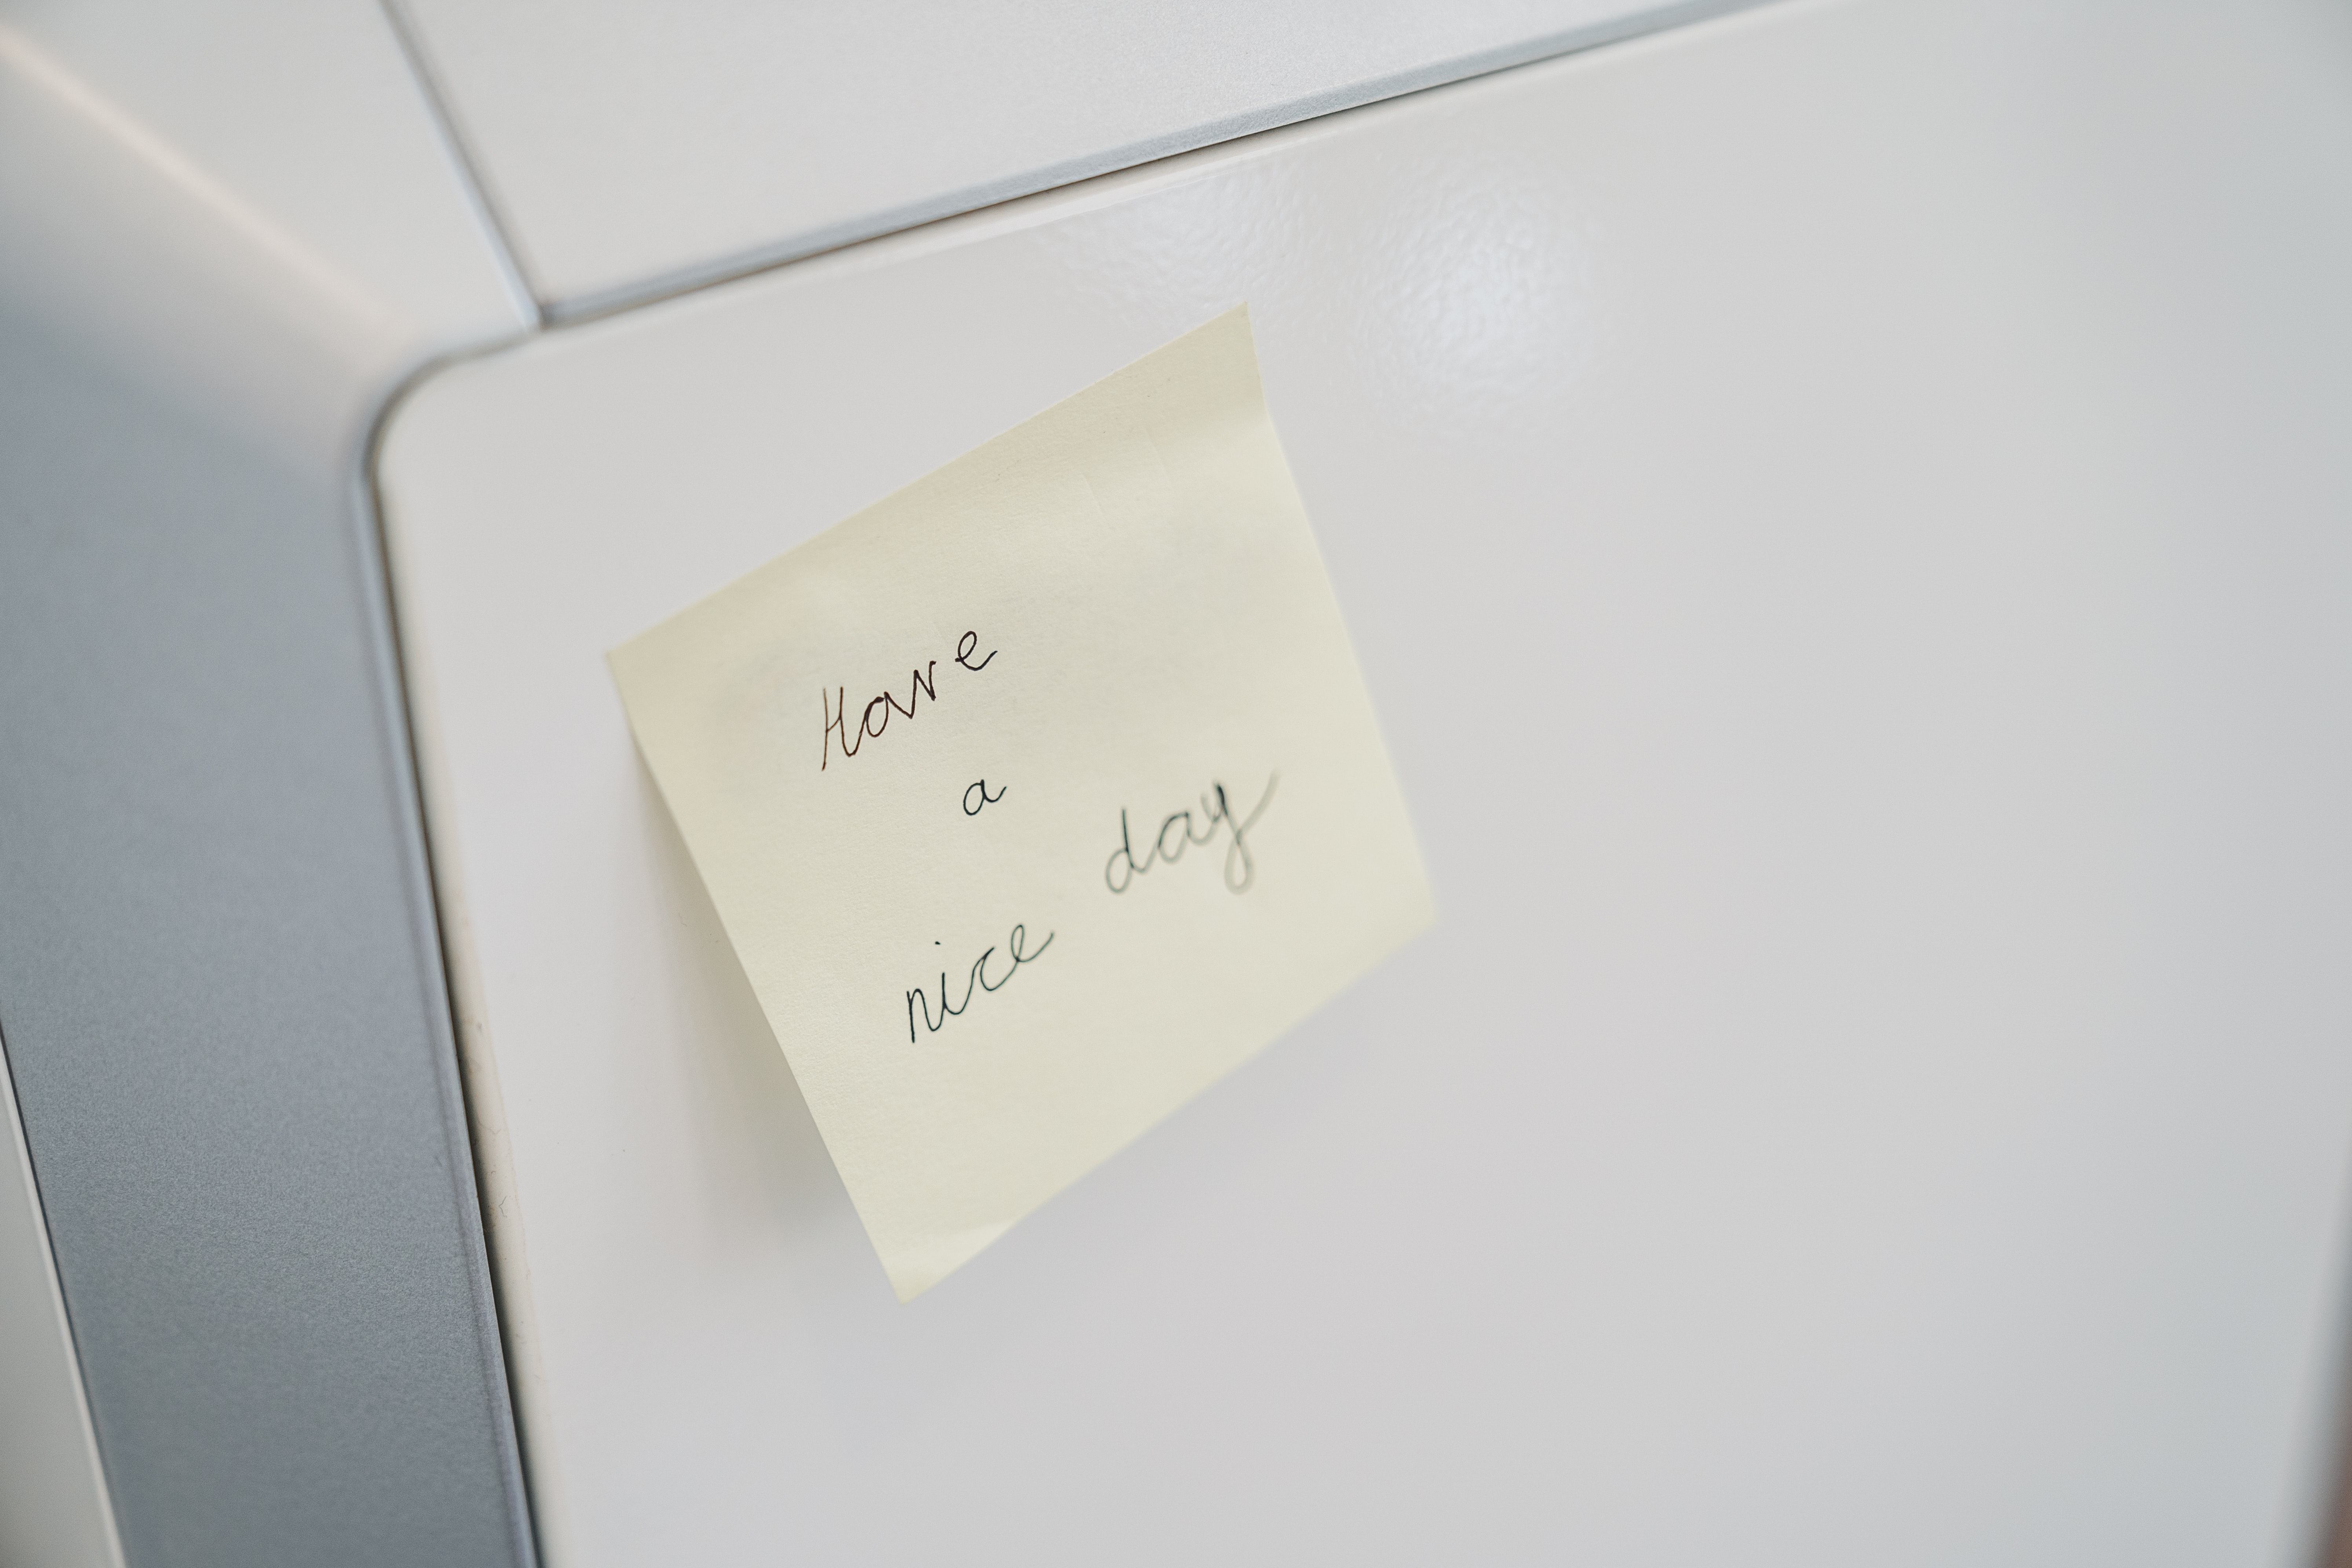 Have
a
nice day